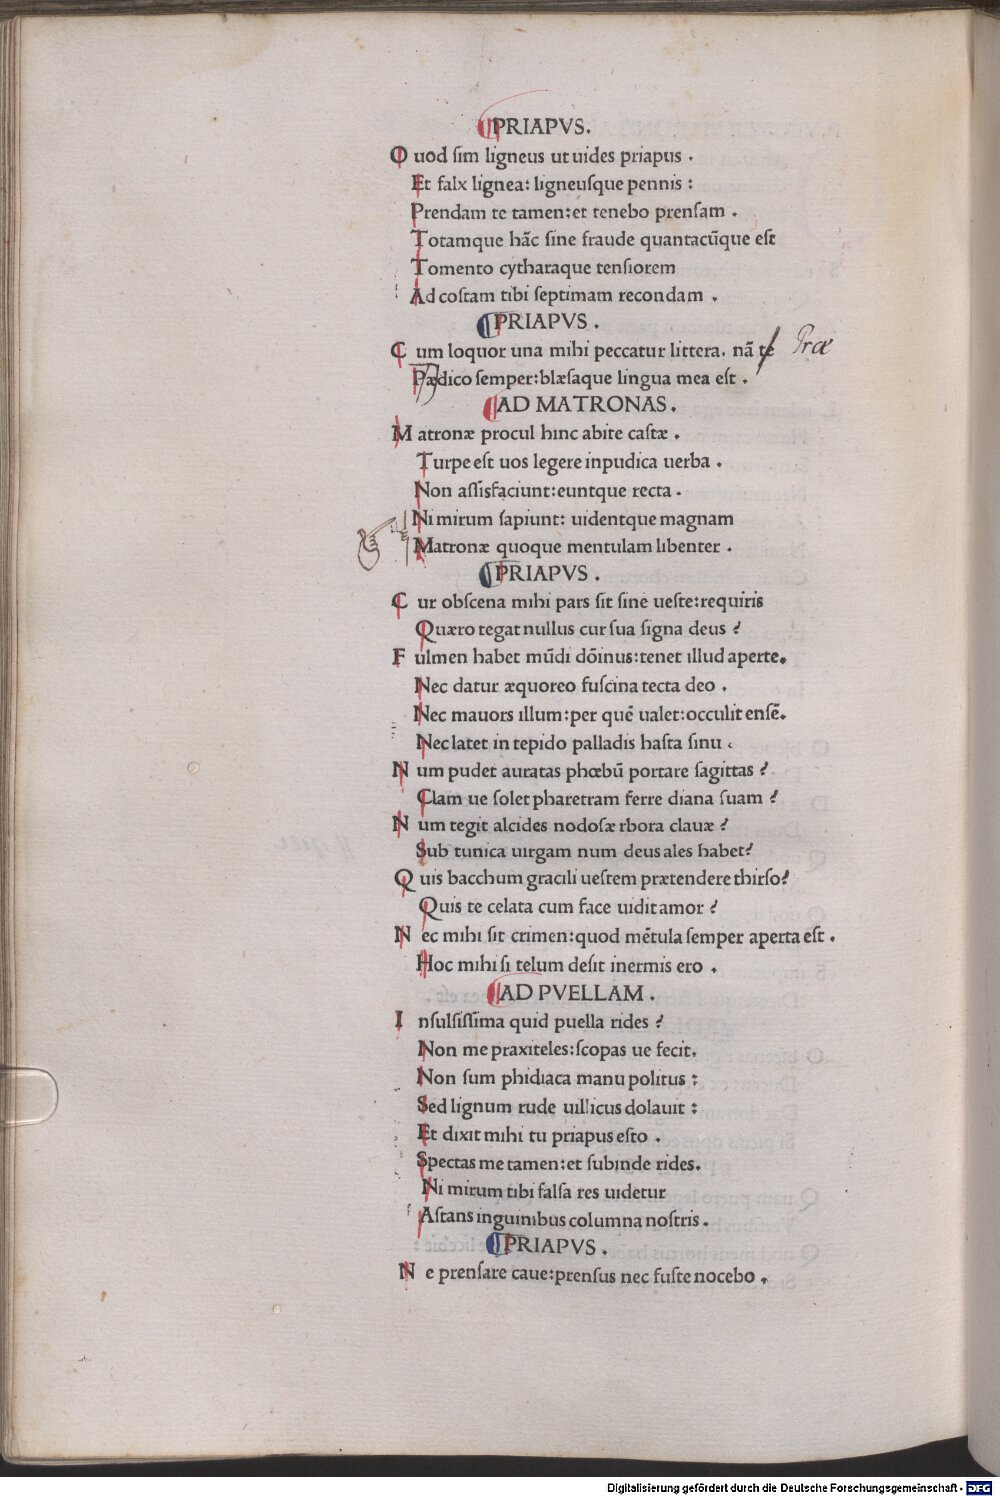 PRIAPVS.
Quod ſim ligneus ut uides priapus .
Et falx lignea: ligneuſque pennis :
Prendam te tamen:et tenebo prenſam .
Totamque hãc ſine fraude quantacũque eſt
Tomento cytharaque tenſiorem
Ad coſtam tibi ſeptimam recondam .
PRIAPVS .
Cum loquor una mihi peccatur littera. nã te Præ
Pædico ſemper:blæſaque lingua mea eſt .
AD MATRONAS .
Matronæ procul hinc abite caſtæ .
Turpe eſt uos legere inpudica uerba .
Non aſſisfaciunt:euntque recta .
Ni mirum ſapiunt: uidentque magnam
Matronæ quoque mentulam libenter .
PRIAPVS .
Cur obſcena mihi pars ſit ſine ueſte:requiris
Quæro tegat nullus cur ſua ſigna deus ?
Fulmen habet mũdi dõinus:tenet illud aperte.
Nec datur æquoreo fuſcina tecta deo .
Nec mauors illum:per quẽ ualet:occulit enſẽ.
Nec latet in tepido palladis haſta ſinu .
Num pudet auratas phœbũ portare ſagittas ?
Clam ue ſolet pharetram ferre diana ſuam ?
Num tegit alcides nodoſæ rbora clauæ ?
Sub tunica uirgam num deus ales habet?
Quis bacchum gracili ueſtem prætendere thirſo?
Quis te celata cum face uidit amor ?
Nec mihi ſit crimen:quod mẽtula ſemper aperta eſt .
Hoc mihi ſi telum deſit inermis ero .
AD PVELLAM .
Inſulſiſſima quid puella rides ?
Non me praxiteles:ſcopas ue fecit.
Non ſum phidiaca manu politus :
Sed lignum rude uillicus dolauit :
Et dixit mihi tu priapus eſto .
Spectas me tamen:et ſubinde rides.
Ni mirum tibi falſa res uidetur
Aſtans inguinibus columna noſtris .
PRIAPVS .
Ne prenſare caue:prenſus nec fuſte nocebo .
Digitalisierung gefördert durch die Deutsche Forschungsgemeinschaft - DFG